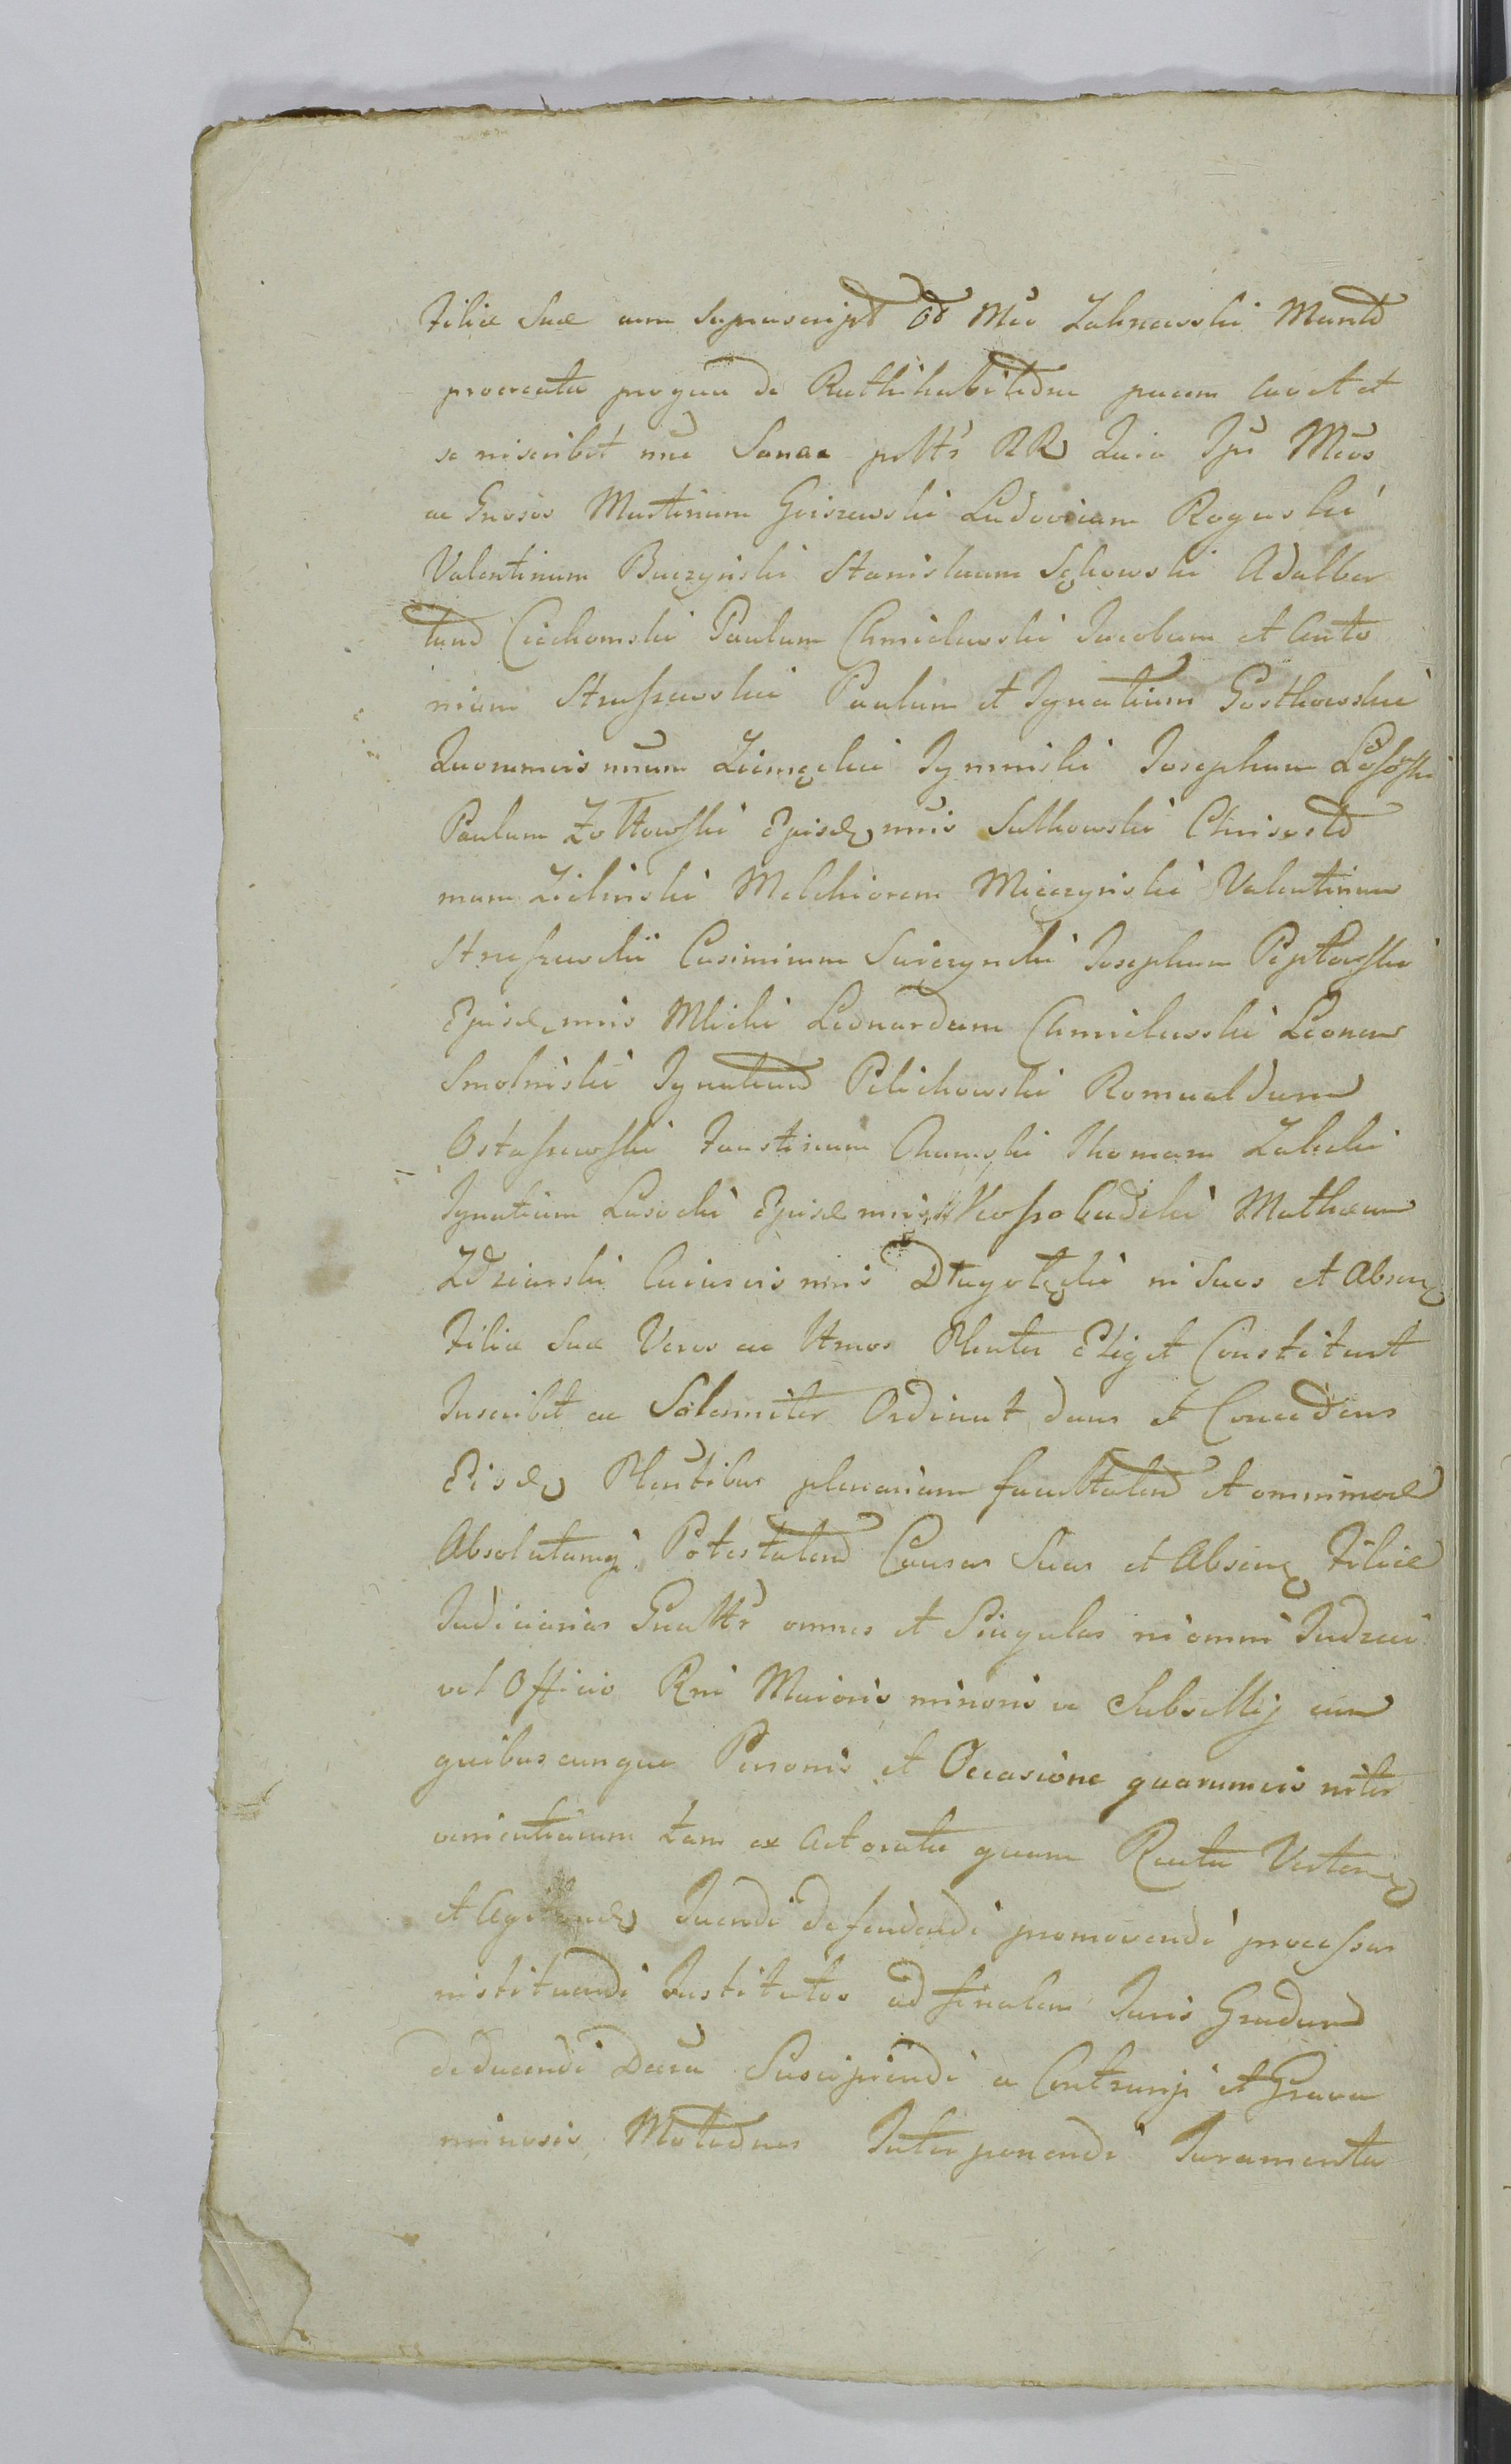 Filiæ Suæ cum suprascript od Mco Zakrzewski Marito
procreatæ pro qua de Rathihabitione pacem cavet et
se inscribit nunc Sanae RR Quia Ipse Mcos
ac Gnosos Martinum Gorszewski Ludovicum Rogowski
Valentinum Buczyński Stanislaum Sękowski Adalber
tum Ciechomski Paulum Chmielewski Jacobum et Anto
nium Straszewskie Paulum et Ignatium Gostkowskie
Quorumvis num Ziemęckie Józephum
Paulum Zołtowski Episd nnis Sutkowski Chrisosto
mum Zielinski Melchiorem Mieczynski Valentinum
Straszewski Casimirum Swiezynski Josephum Peptowski
Episd nnis Mlicki Leonardum Chmielewski Leonem
Smolński Ignatium Pelichowski Romualdum
Ostaszewski Faustinum Chamski Thomam Zaleski
Ignatium Lasocki Episd nnis Kossobudzki Mathæum
Zdziarski Cuiusvis nnis Długołęcki in Suos et Absen
Filiæ Suæ Veros ac Ltmos Plenter Eligit Constituit
Inscribit ac Solemniter Ordinat dans et Concedens
Eisd Plentibus plenariam facultatem et omnimod
Absolutamq Potestatem Causas Suas et Absen Filiæ
Judiciarias Gnaltr omnes et Singulas in omni Judicii
vel Officio Rni Maioris minoris ve Subsellij cum
quibuscunque Personis et Occasione quarumvis inter
venientiarum tam ex Actoratu quam Reatu Verten
et Agitand Tuendi defendendi promovendi processus
instituendi Institutos ad finalem Juris Gradum
deducendi Decra Suscipiendi a Contrarijs et Grava
minosis Motiones Interponendi Juramenta